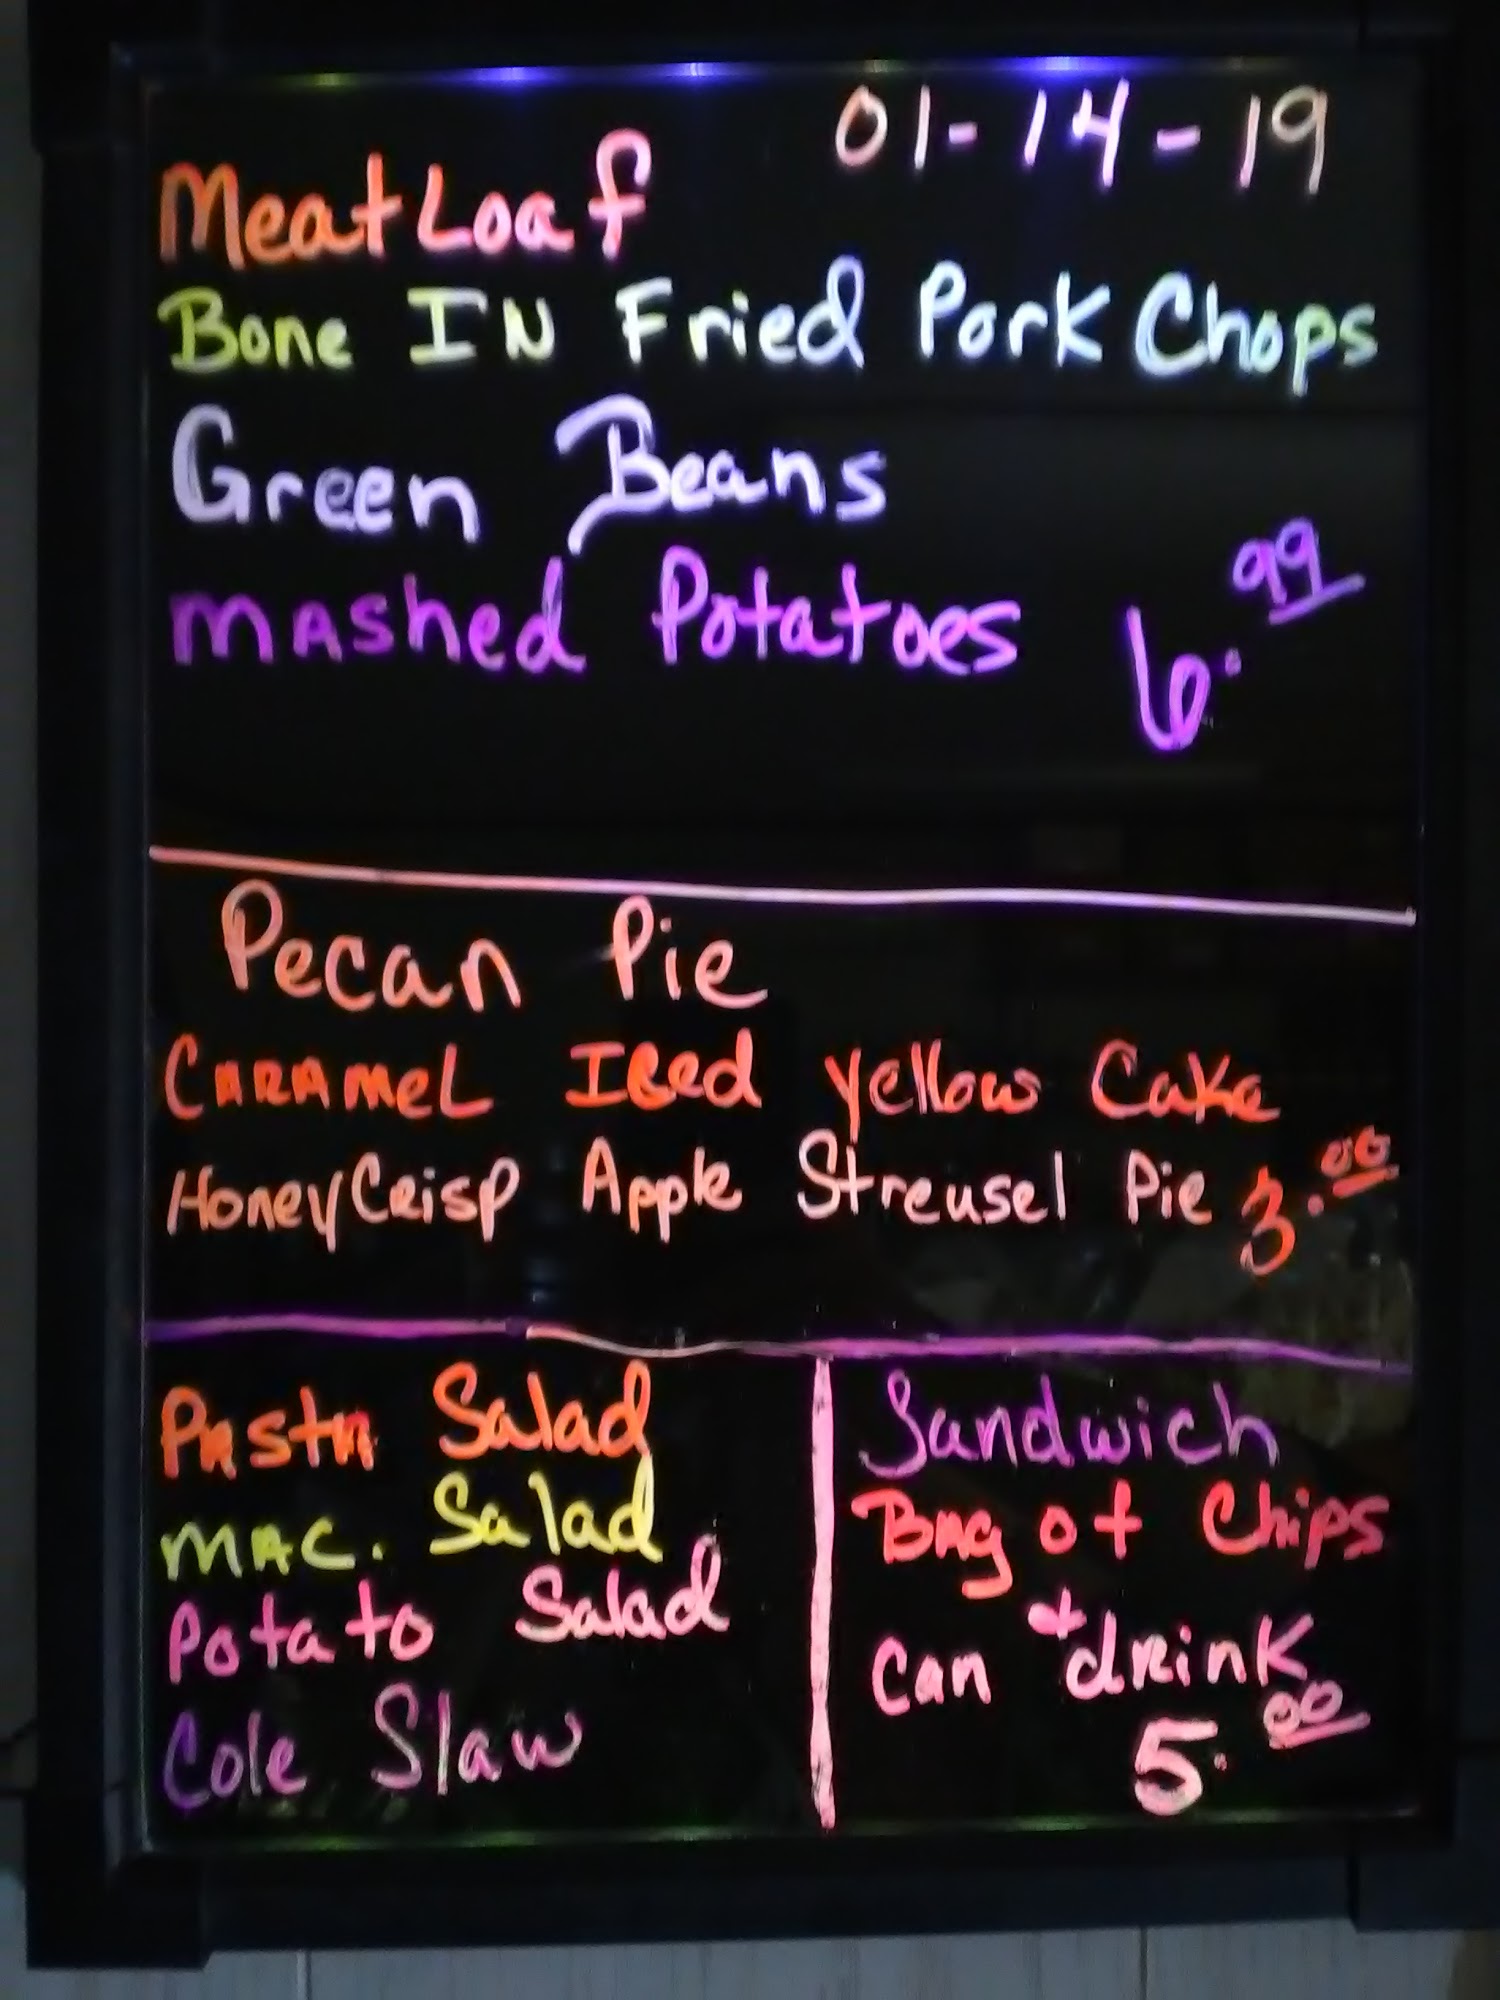 01-14-19
MeatLoaf
Bone IN Fried Pork Chops
Green Beans
MAShed Potatoes 6.99
Pecan Pie
CARAMeL Iced Yellow Cake
HoneyCRisp Apple Streusel Pie 3.00
PAStA Salad
MAC. Salad
Potato Salad
Cole Slaw
Sandwich
BAg of Chips
+
Can dRink
5.00